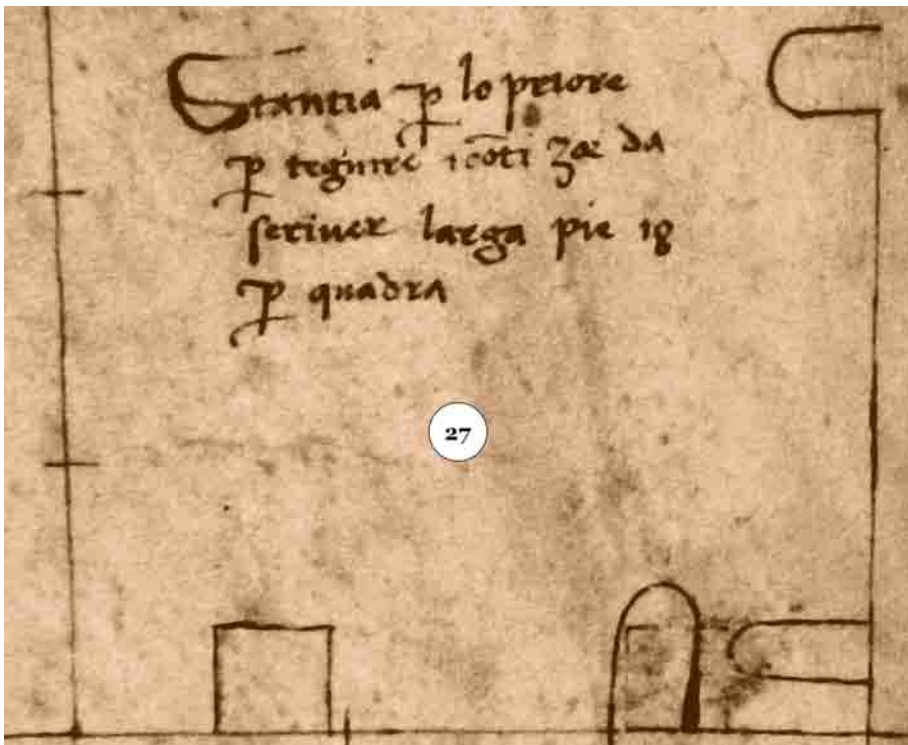 Stantia p̱ lo priore
p̱ tegnire i cōti ʒoe da
scriver larga pie 18
p̱ quadra
27